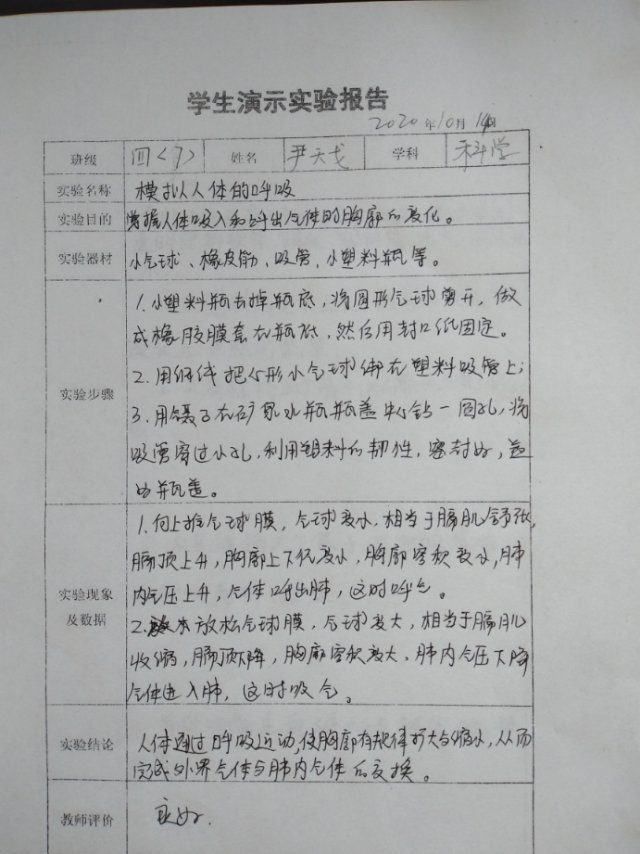 学生演示实验报告
2020年10月14日
班级 四<7> 姓名 尹天戈 学科 科学
实验名称 模拟人体的呼吸
实验目的 掌握人体吸入和呼出气体时胸廓的变化。
实验器材 小气球、橡皮筋、吸管、小塑料瓶等。
1.小塑料瓶去掉瓶底,将圆形气球剪开,做
成橡胶膜套在瓶底,然后用封口纸固定。
2.用细线把小形小气球绑在塑料吸管上;
实验步骤
3.用镊子在矿泉水瓶瓶盖中心钻一圆孔,将
吸管穿过小孔,利用塑料的韧性,密封好,盖
好瓶盖。
1.向上推气球膜,气球变小.相当于膈肌舒张,
膈顶上升,胸廓上下径变小,胸廓容积变小,肺
实验现象 内气压上升,气体呼出肺,这时呼气。
及数据 2.放松气球膜,气球变大,相当于膈肌
收缩,膈顶下降,胸廓容积变大.肺内气压下降
气体进入肺,这时吸气。
实验结论 人体通过呼吸运动,使胸廓有规律扩大与缩小,从而
完成外界气体与肺内气体的交换。
教师评价 良好.